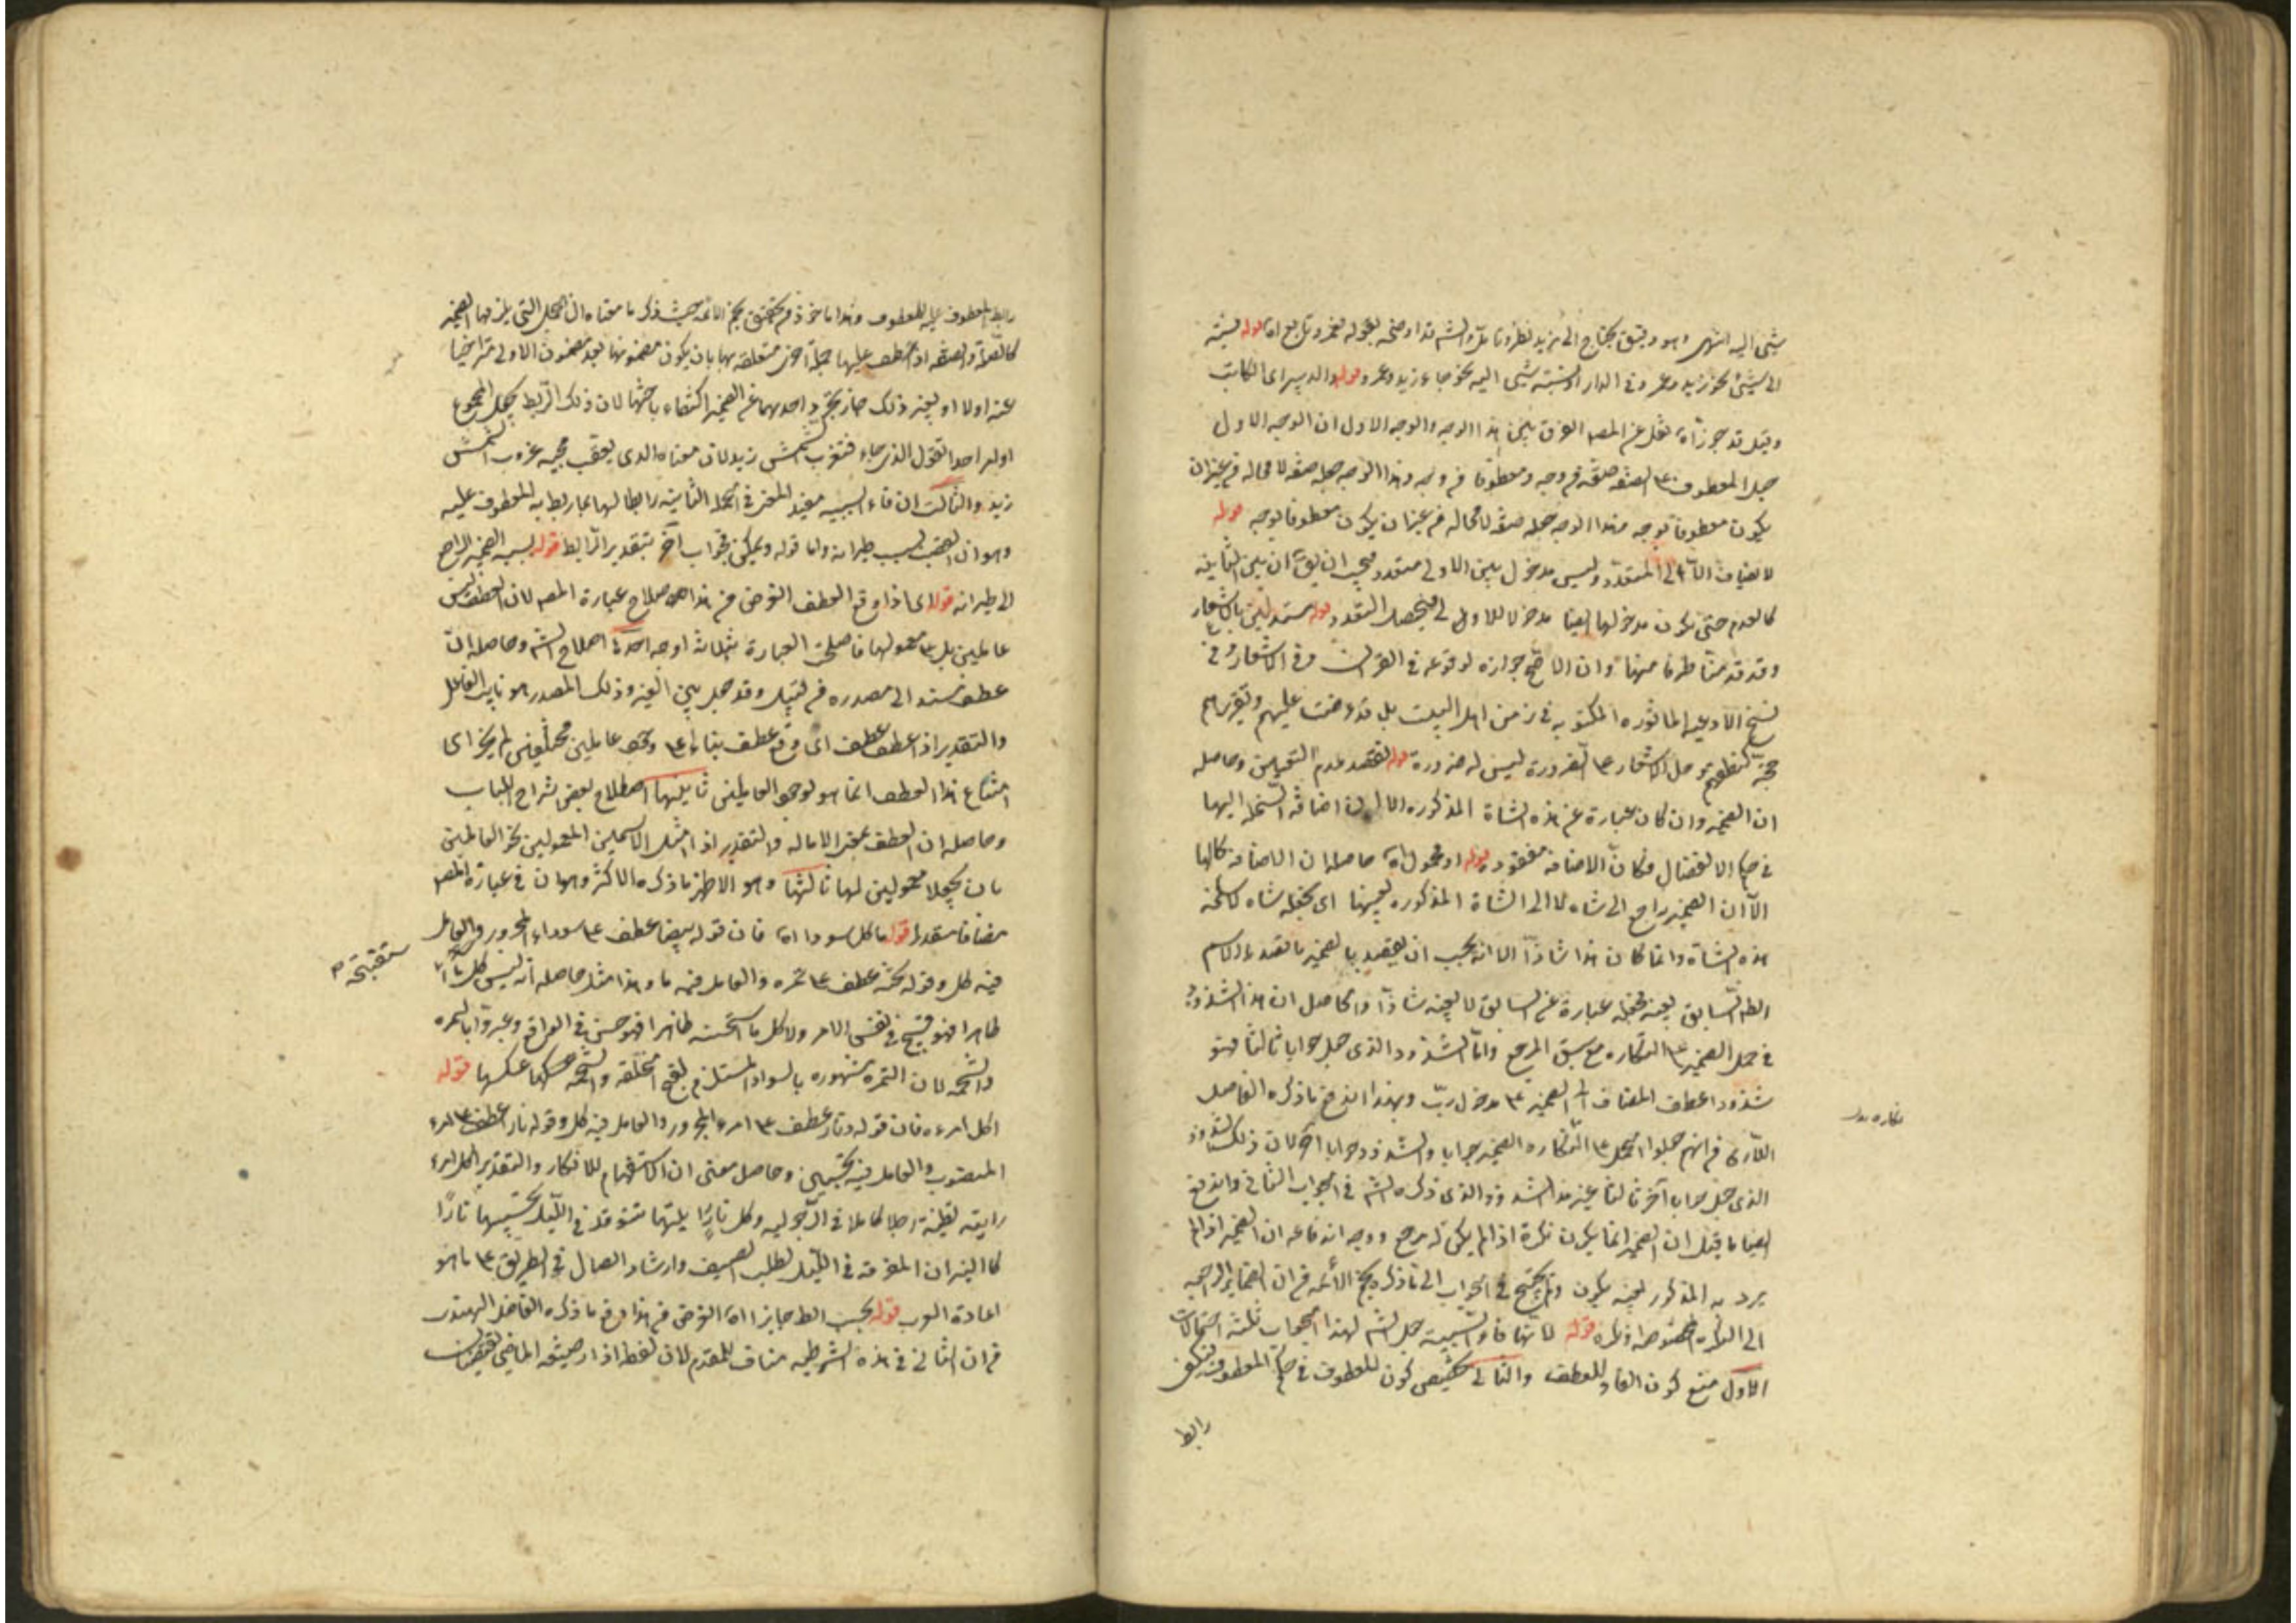 شيئ اليه انتهى وهو دقيق يحتاج الى مزيد نظر وتامل والشم قد اوضحه بقوله نعم وتابع اه قوله نسبته
الى شيئ نحو زيد وعمرو فى الدار او نسبته شيئ اليه نحو جاء زيد وعمرو قوله اى الكاتب
وقيل قد جوز اه نقل عن المصم الفرق بين هذا الوجه والوجه الاول ان الوجه الاول
جعل المعطوف على الصفه صفة فى وجه ومعطوفا فى وجه وهذا الوجه جعله صفه لا محاله من غير ان
يكون معطوفا بوجه وهذا الوجه جعله صفه لا محاله من غير ان يكون معطوفا بوجه قوله
لا يضاف الا الى المتعدد وليس مدخول بين الاولى متعدد فيجب ان يق ان بين الثانيه
كالعدم حتى يكون مدخولها ايضا مدخولا للاولى ليحصل التعدد قوله مستدلين بالاشعار
وقد قدمنا طرفا منها وان الاصح جوازه لوقوعه فى القران وفى الاشعار وفى
نسخ الادعيه الماثوره المكتوبه فى زمن اهل البيت بل قد عرضت عليهم وتقريرهم
حجة كنطقهم وحمل الاشعار على الضرورة ليس له ضرورة قوله لقصد عدم التعيين وحاصله
ان الضمير وان كان عبارة عن هذه الشاة المذكوره الا ان اضافه السخله اليها
فى حكم الانفصال فكان الاضافه مفقوده قوله او محمول اه حاصله ان الاضافه كالها
الا ان الضمير راجع الى شاه لا الى الشاة المذكوره بعينها اى سخله شاه كائنه
هذه الشاة وانما كان هذا شاذا لانه يجب ان يقصد بالضمير ما قصد بالاسم
الظ السابق بعينه فجعله عبارة عن السابق لا بعينه شاذا والحاصل ان هذا الشذوذ
فى حمل الضمير على النكاره مع سبق المرجع واما الشذوذ الذى جعل جوابا ثالثا فهو
شذوذ اعطاف المضاف الى الضمير على مدخول رب وبهذا اندفع ما ذكره الفاضل
اللارى من انهم جعلوا الحمل على النكاره الضمير جوابا والشذوذ جوابا آخر لان ذلك الشذوذ
الذى جعل جوابا آخر ثالثا غير هذا الشذوذ الذى ذكره الشم فى الجواب الثانى واندفع
ايضا ما قيل ان الضمير انما يكون نكرة اذا لم يكن له مرجع ووجه اندفاعه ان الضمير اذا لم
يرد به المذكور بعينه يكون ولم يحتج فى الجواب الى ما ذكره نجم الائمه من ان الضمائر الراجعه
الى النكره المخصوصه اذ نكره قوله لانها فاء السببيه جعل الشم لهذا الجواب ثلثة احتمالات
الاول منع كون الفاء للعطف والثانى تخصيص كون المعطوف فى حكم المعطوف عليه
رابط
نكاره
رابط المعطوف عليه للمعطوف وهذا ماخوذ من تحقيق نجم الائمه حيث ذكر ما معناه ان الجمل التى يلزمها الضمير
كالصلة والصفه اذا عطف عليها جملة اخرى متعلقه بها بان يكون مضمونها بعد مضمون الاولى متراخيا
عنه اولا او بغير ذلك جاز تجريد احدهما عن الضمير اكتفاء باختها لان ذلك الربط يجعل المجموع
اولها احد القول الذى جاء فتغرب الشمس زيد لان معناه الذى يعقب مجيئه غروب الشمس
زيد والثالث ان فاء السببيه مفيد المعنى فى الجمله الثانيه رابطا لها بما ربط به المعطوف عليه
وهو ان الغضب بسبب طيرانه واما قوله ويمكن فجواب آخر بتقدير الرابط قوله بسبب الضمير الراجع
الى طيرانه قوله اى اذا وقع العطف الغرض من هذا اصلاح عبارة المصم لان العطف ليس
عاملين بل على معموليهما فاصلح العبارة بثلاث اوجه احدها اصلاح الشم وحاصله ان
عطف مسند الى مصدره من قبيل وقد حيل بين العير وذلك المصدر هو نايب الفاعل
والتقدير اذا عطف عطف اى وقع عطف بناء على وجود عاملين مختلفين لم يجز اى
امتناع هذا العطف انما هو لوجود العاملين ثانيها اصطلاح بعض شراح اللباب
وحاصله ان العطف بمعنى الاماله والتقدير اذا اميل الاسمين المعمولين نحو العاملين
بان يجعلا معمولين لهما ثالثها وهو الاظهر ما ذكره الاكثر وهو ان فى عبارة المصم
مضافا مقدرا قوله ما كل سودا اه فان قوله بيضا عطف على سوداء المجرور والعامل
فيه كل وقوله شحمة عطف على تمره والعامل فيه ما وهذا مثل حاصله انه ليس كل ما
ظاهرا فهو قبيح فى نفس الامر ولا كل ما استحسنته ظاهرا فهو حسن فى الواقع وعبروا بالتمره
والشحمه لان التمره مشهوره بالسواد المستلزم لقبح الخلقه والشحمه حكمها عكسها قوله
اكل امرء فان قوله ونار عطف على امرء المجرور والعامل فيه كل وقوله نار عطف على امرء
المنصوب والعامل فيه تحسبين وحاصل معنى ان الاستفهام للانكار والتقدير اكل امرء
رايته تظنينه رجلا كاملا فى الرجوليه وكل نار رايتها تتوقد فى الليل تحسبها نارا
كالنيران المعروفه فى الليل لطلب الضيف وارشاد الضال فى الطريق على ما هو
اعادة العرب قوله بحسب الظ جايزا اه الغرض من هذا دفع ما ذكره الفاضل الهندى
من ان التالى فى هذه الشرطيه مناف للمقدم لان لفظ اذا وصيغه الماضى يقتضيان
ستقبحته